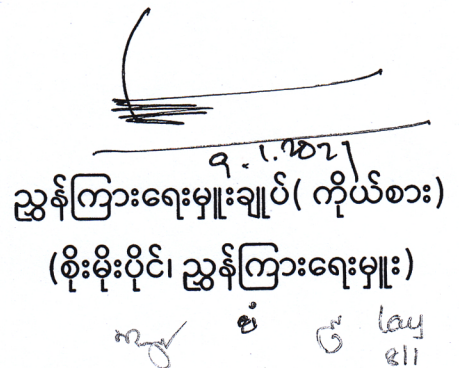 ၇.၁.၂၀၂၁
ညွှန်ကြားရေးမှူးချုပ်( ကိုယ်စား)
(စိုးမိုးပိုင်၊ ညွှန်ကြားရေးမှူး)
lay
8/1